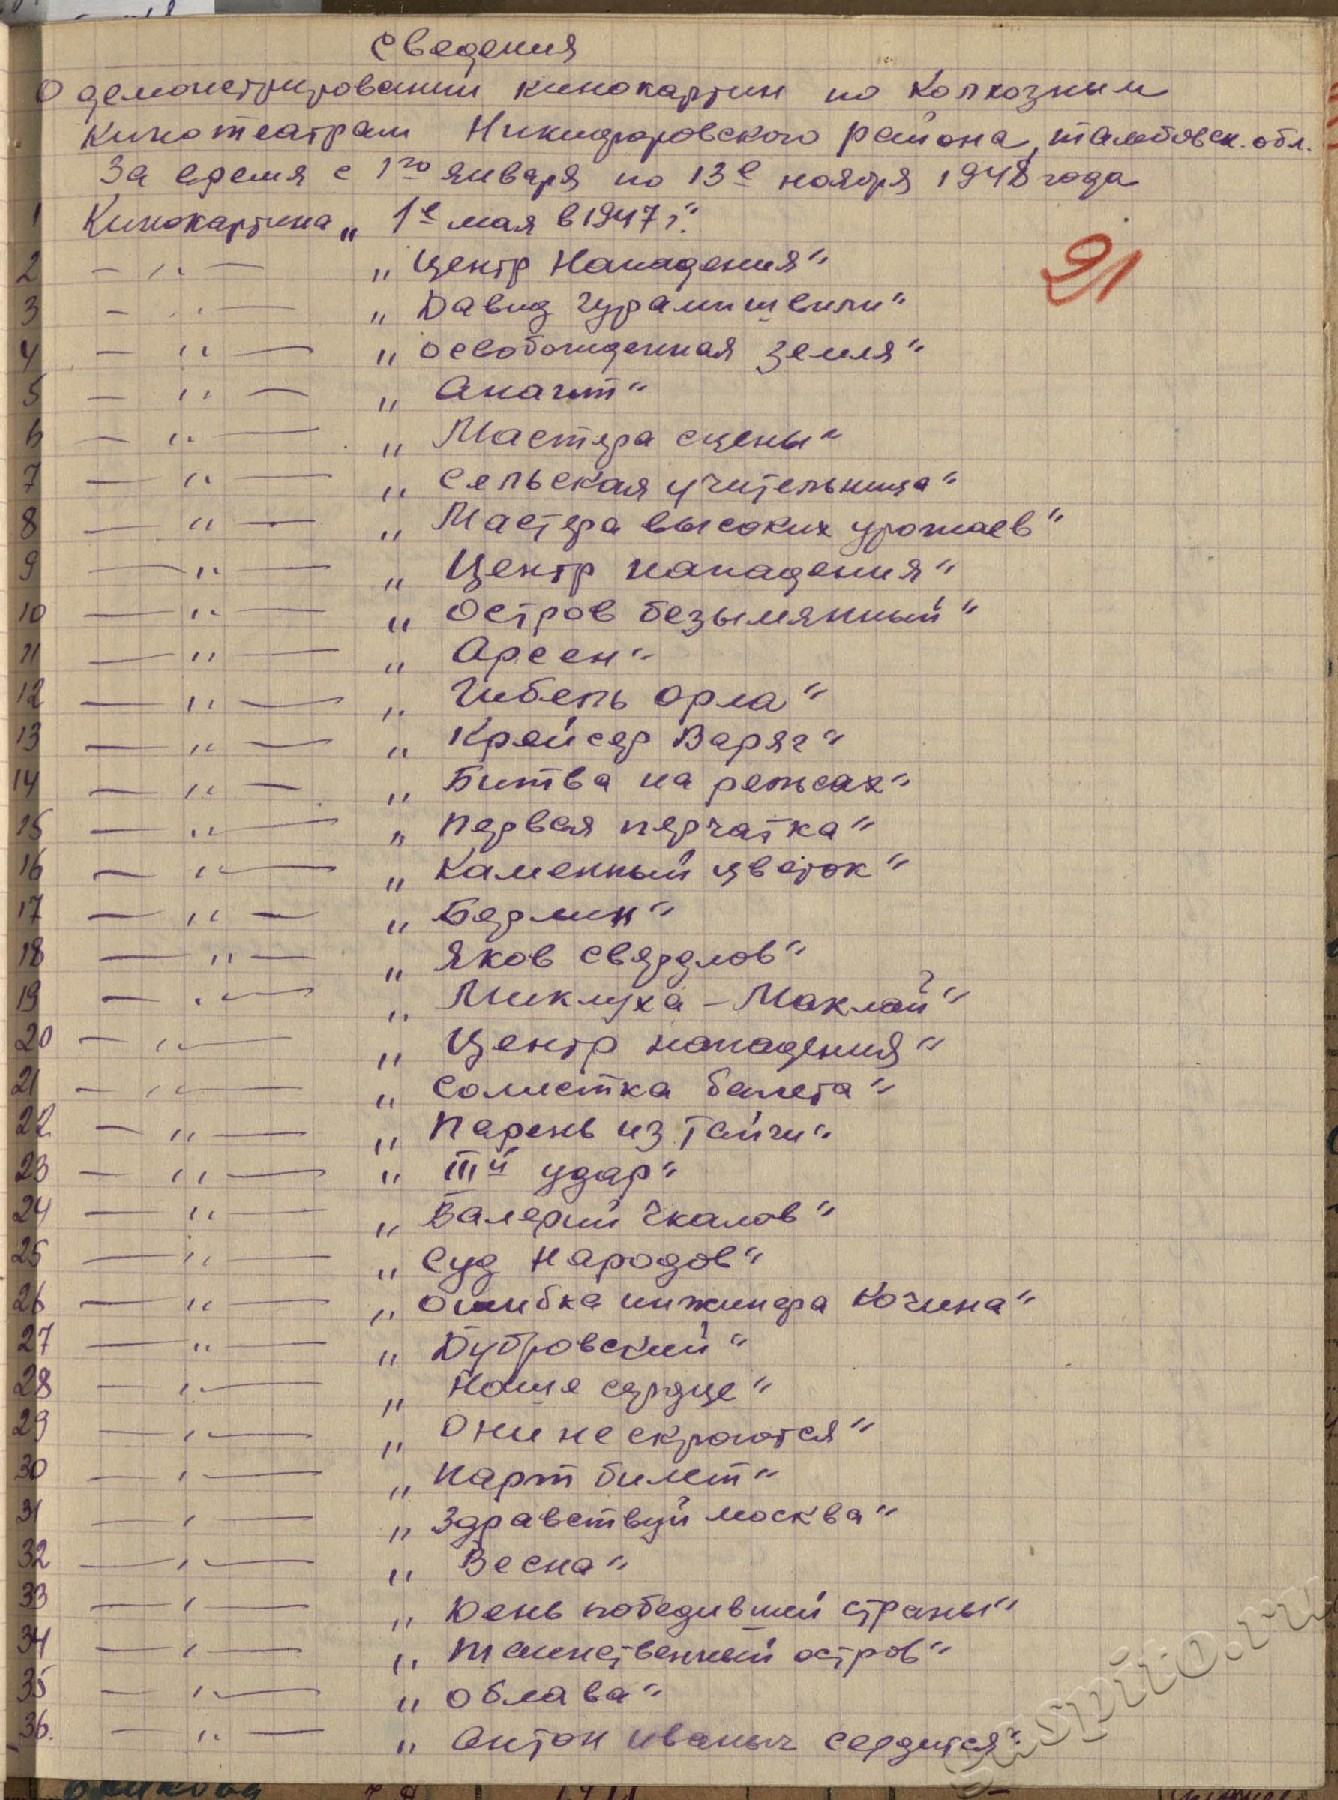 Сведения
О демонстрировании кинокартин по Колхозным
Кинотеатрам Никифоровского района, тамбовск. обл.
За время с 1го января по 13е ноября 1948 года
1 Кинокартина „ 1е мая в 1947 г."
2 — „ — „ Центр Нападения"
3 — „ — „ Давид Гурамишвили"
4 — „ — „ освобожденная земля"
5 — „ — „ Анаит"
6 — „ — „ Мастера сцены"
7 — „ — „ Сельская учительница"
8 — „ — „ Мастера высоких урожаев"
9 — „ — „ Центр нападения"
10 — „ — „ Остров безымянный"
11 — „ — „ Арсен"
12 — „ — „ Гибель орла"
13 — „ — „ Крейсер Варяг"
14 — „ — „ Битва на рельсах"
15 — „ — „ Первая перчатка"
16 — „ — „ Каменный цветок"
17 — „ — „ Берлин"
18 — „ — „ Яков Свердлов"
19 — „ — „ Миклуха - Маклай"
20 — „ — „ Центр нападения"
21 — „ — „ Солистка балета"
22 — „ — „ Парень из Тайги"
23 — „ — „ IIIй удар"
24 — „ — „ Валерий Чкалов"
25 — „ — „ Суд Народов"
26 — „ — „ Ошибка инжинера Кочина"
27 — „ — „ Дубровский"
28 — „ — „ Наше сердце"
29 — „ — „ Они не скроются"
30 — „ — „ Парт билет"
31 — „ — „ Здравствуй москва"
32 — „ — „ Весна"
33 — „ — „ День победившей страны"
34 — „ — „ Таинственный остров"
35 — „ — „ Облава"
36. — „ — „ Антон иваныч сердится"
21
gaspito.ru